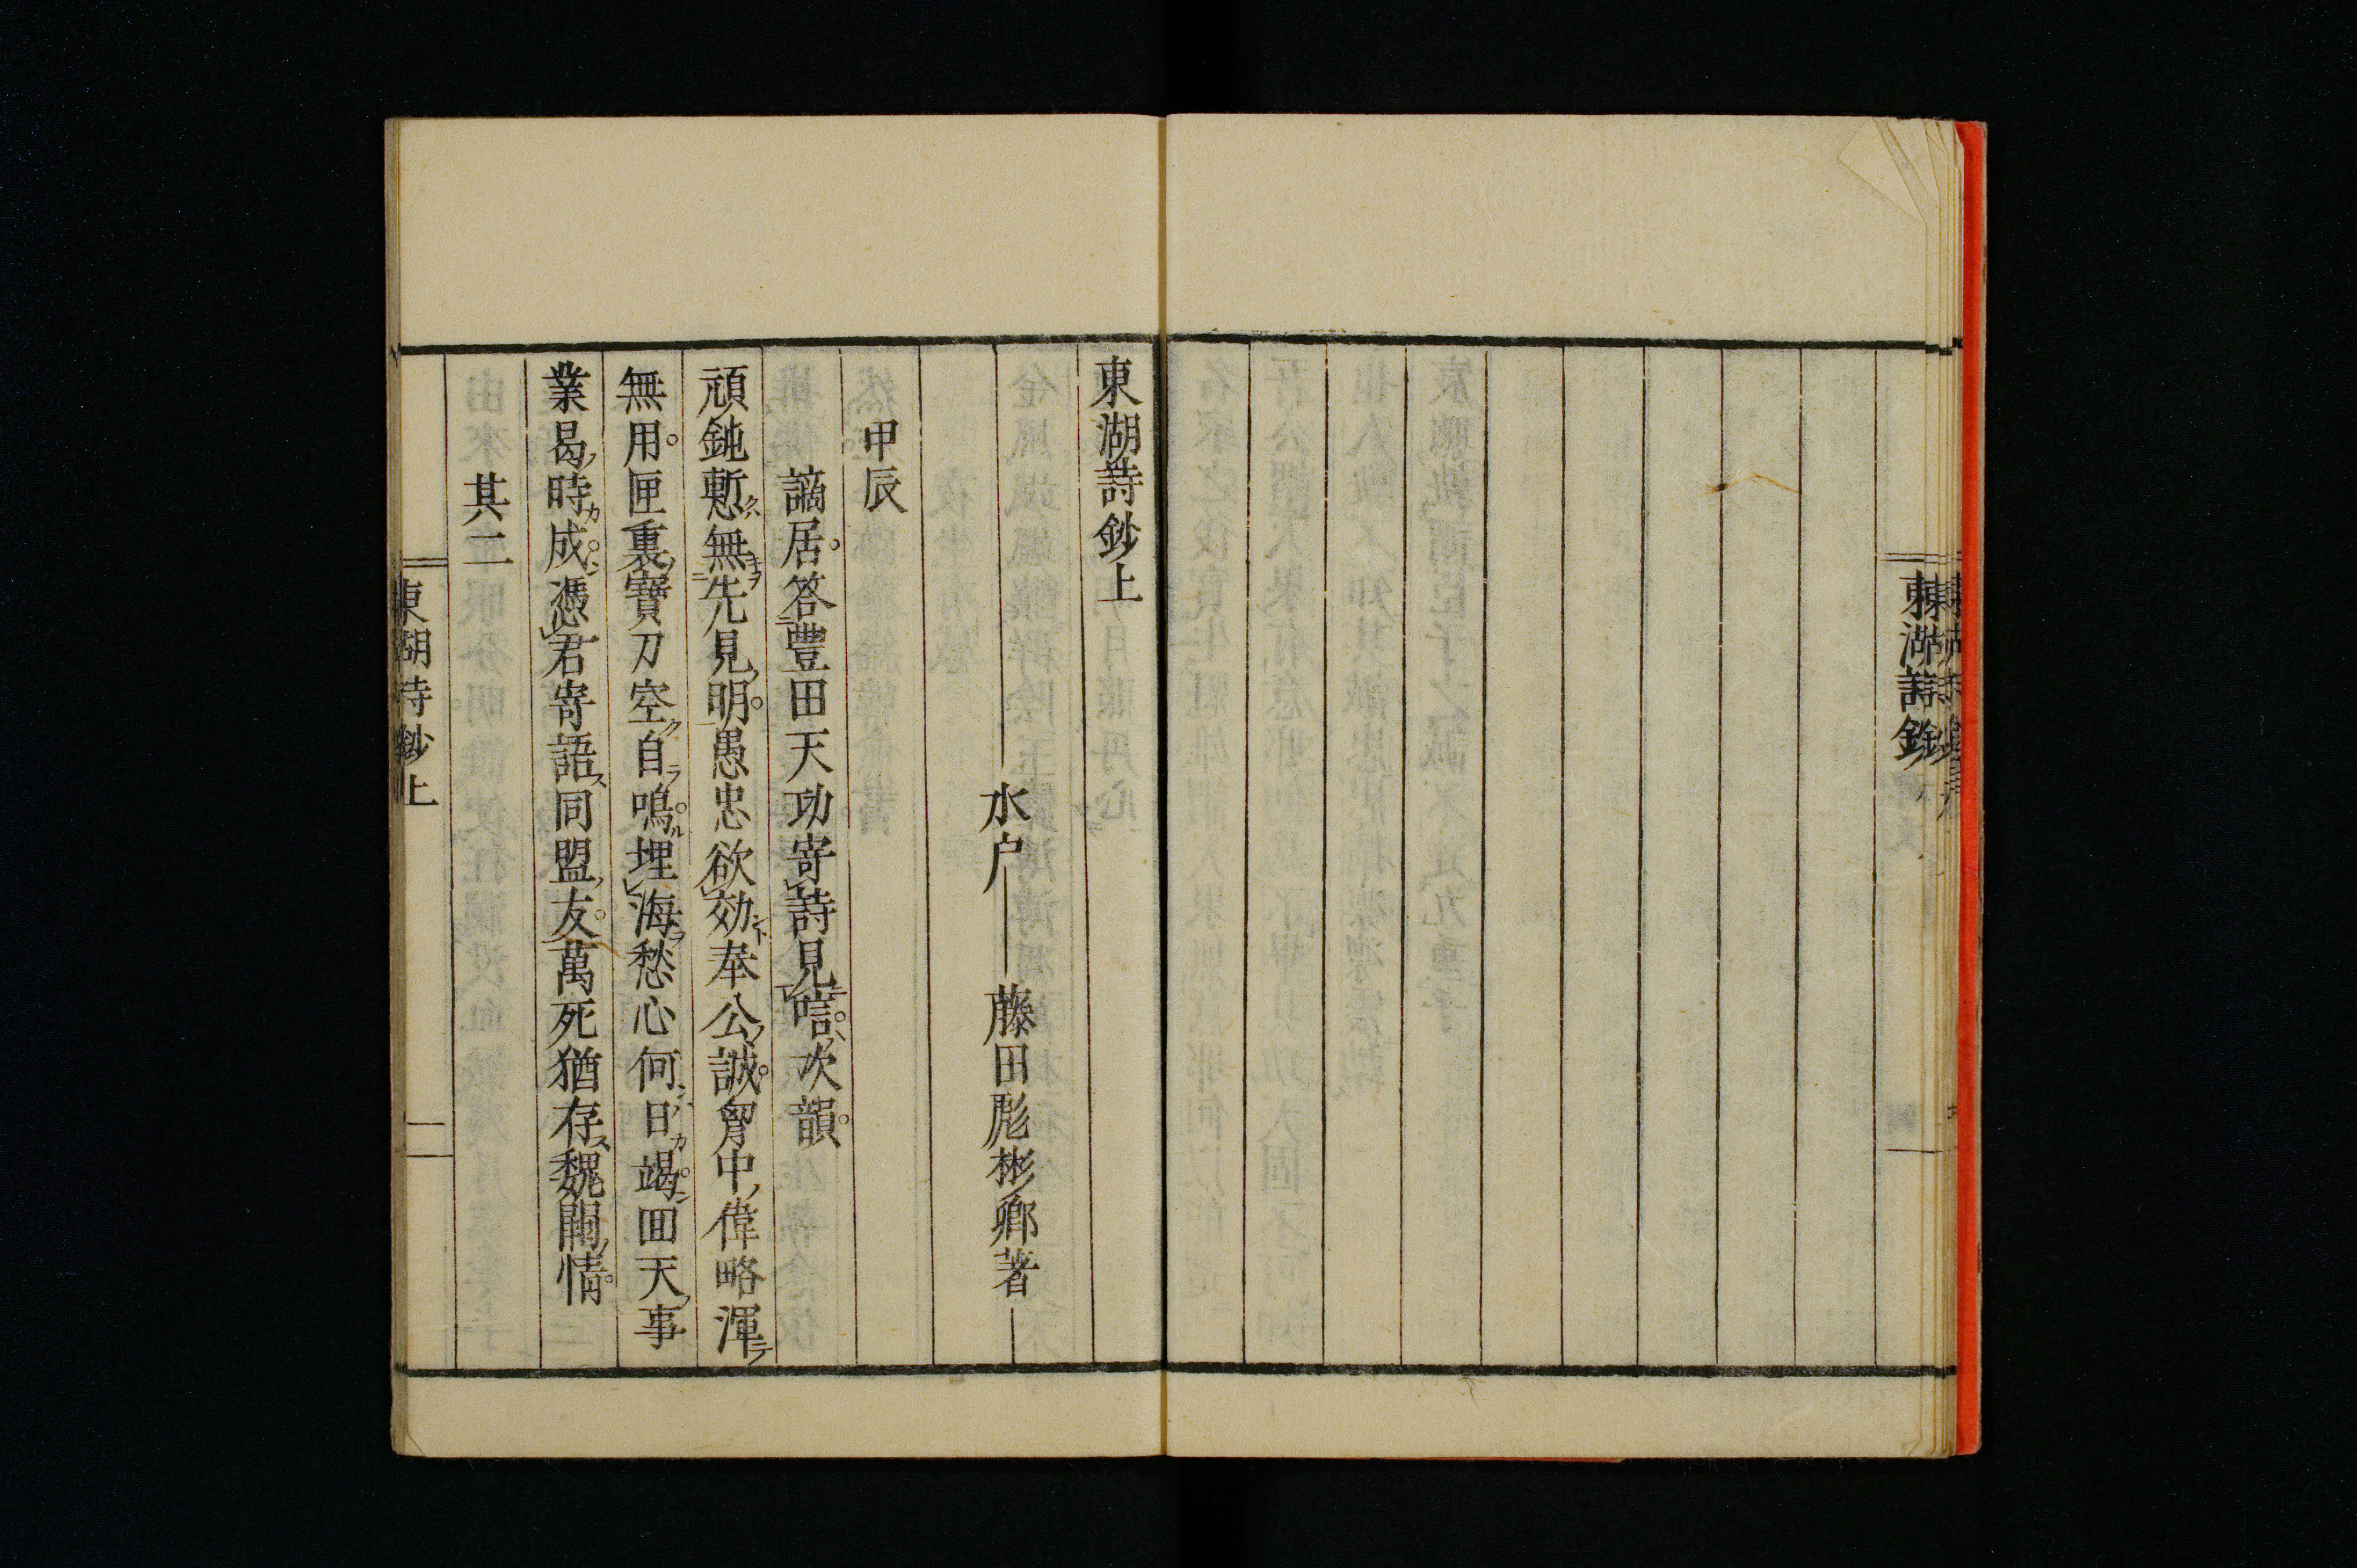 東湖詩鈔
東湖詩鈔上
水户 藤田彪彬卿著
甲辰
謫居答豐田天功寄詩見唁次韻
頑鈍慙無先見明愚忠欲効奉公誠胷中偉略渾
無用匣裏寶刀空自鳴埋海愁心何日竭回天事
業曷時成憑君寄語同盟友萬死猶存魏闕情
其二
東湖詩鈔上
一